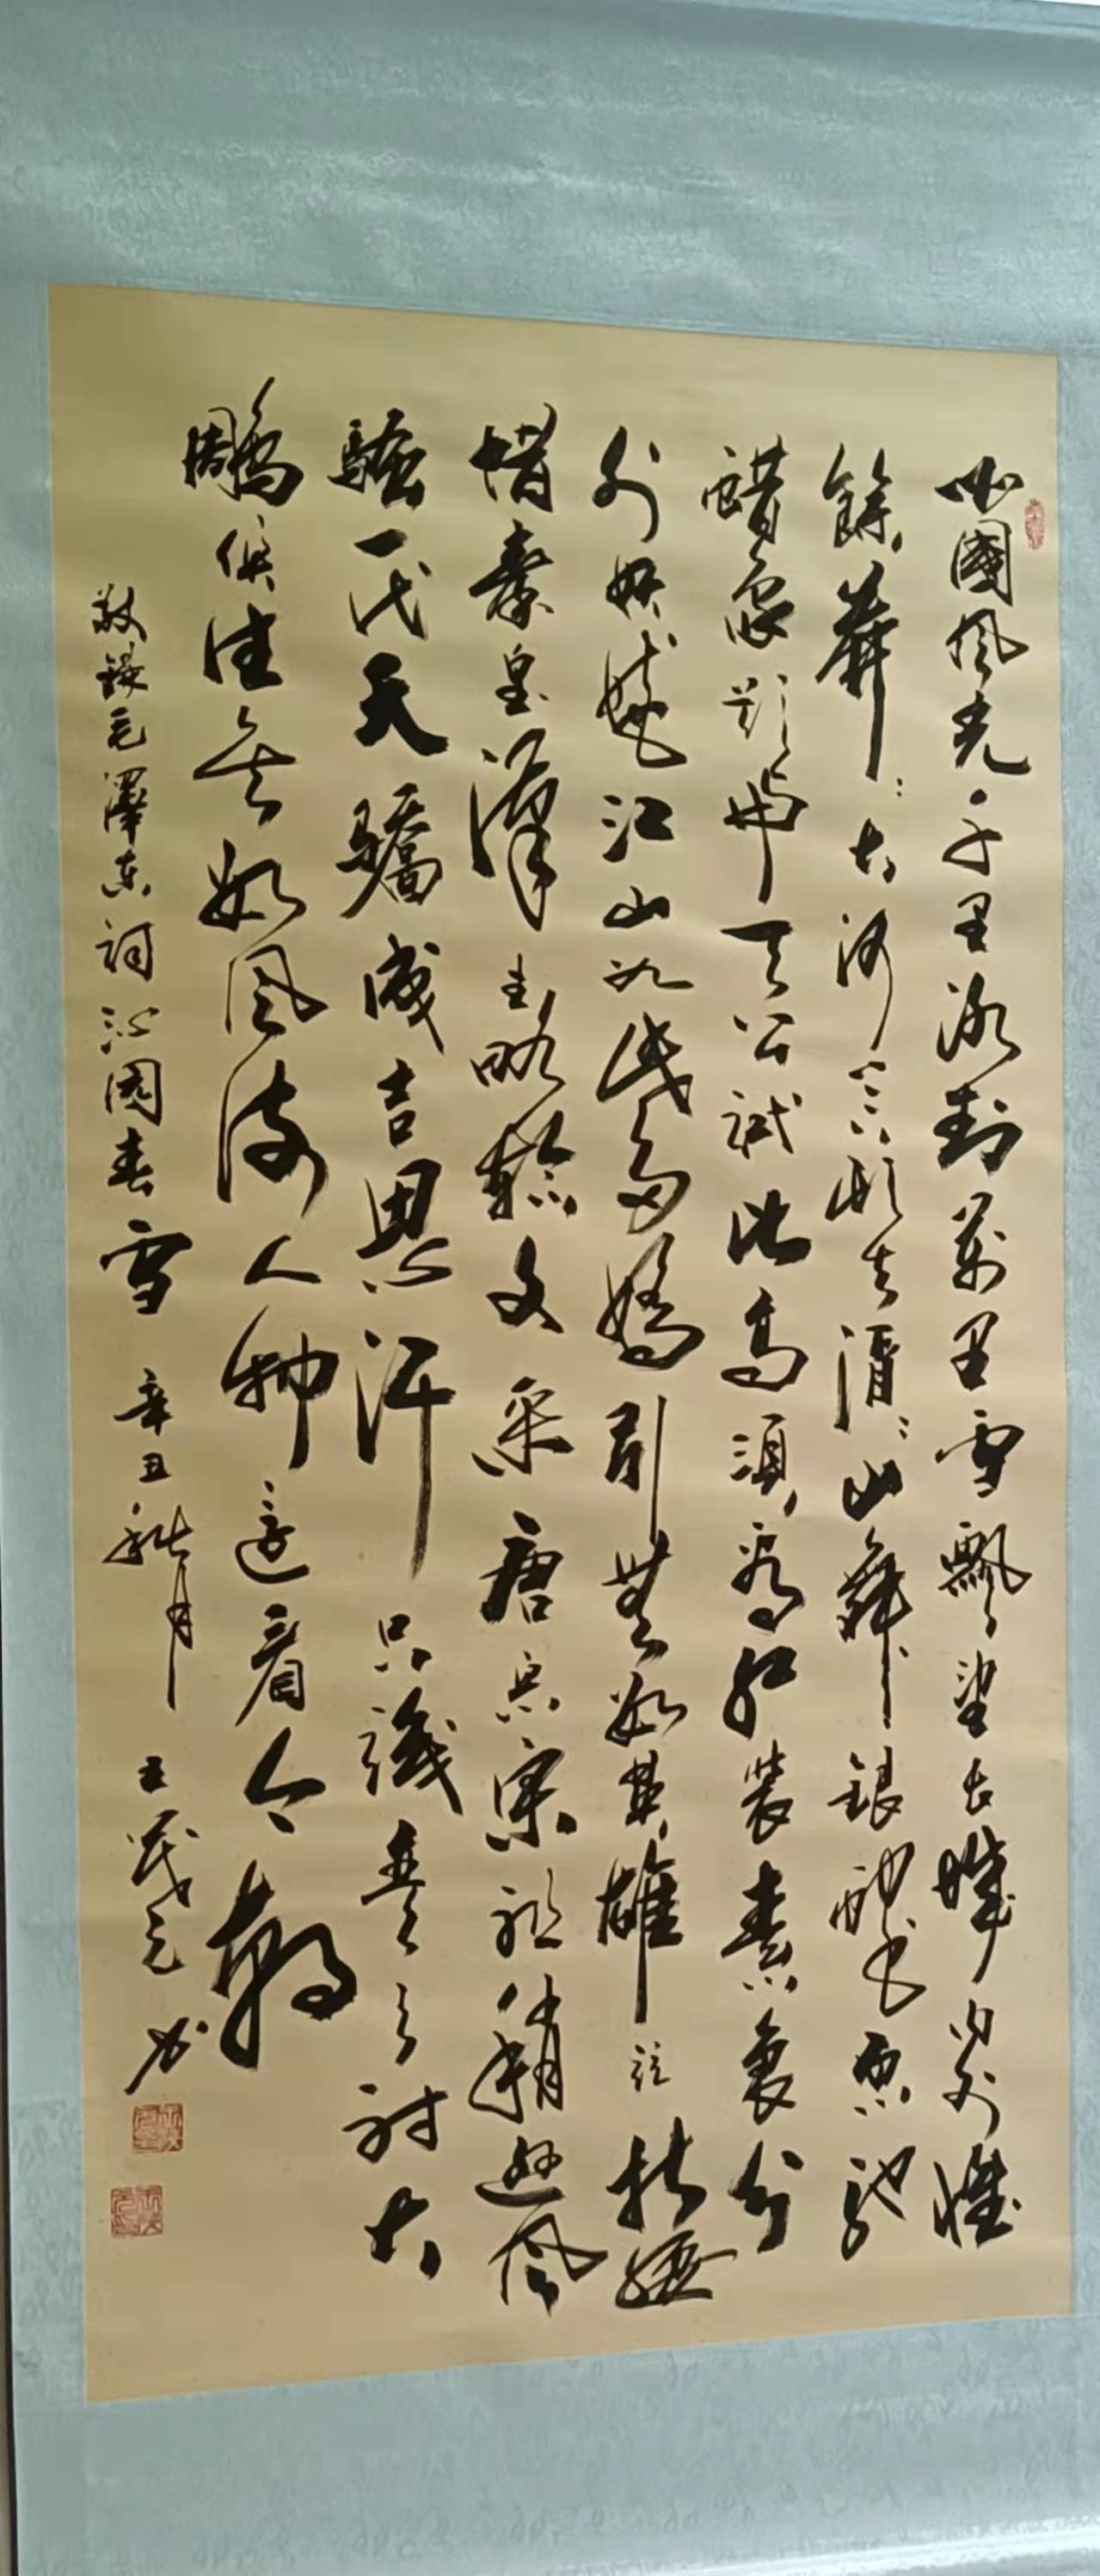 北國風光千里冰封萬里雪飄望長城內外惟
餘莽莽大河上下頓失滔滔山舞銀蛇原馳
蜡象欲與天公試比高須看紅裝素裹分
外妖嬈江山如此多嬌引無數英雄競折腰
惜秦皇漢武略輸文采唐宗宋祖稍遜風
騷一代天驕成吉思汗只識彎弓射大
鵰俱往矣數風流人物還看今朝
敬録毛澤東詞沁園春雪 辛丑秋月 王茂元书